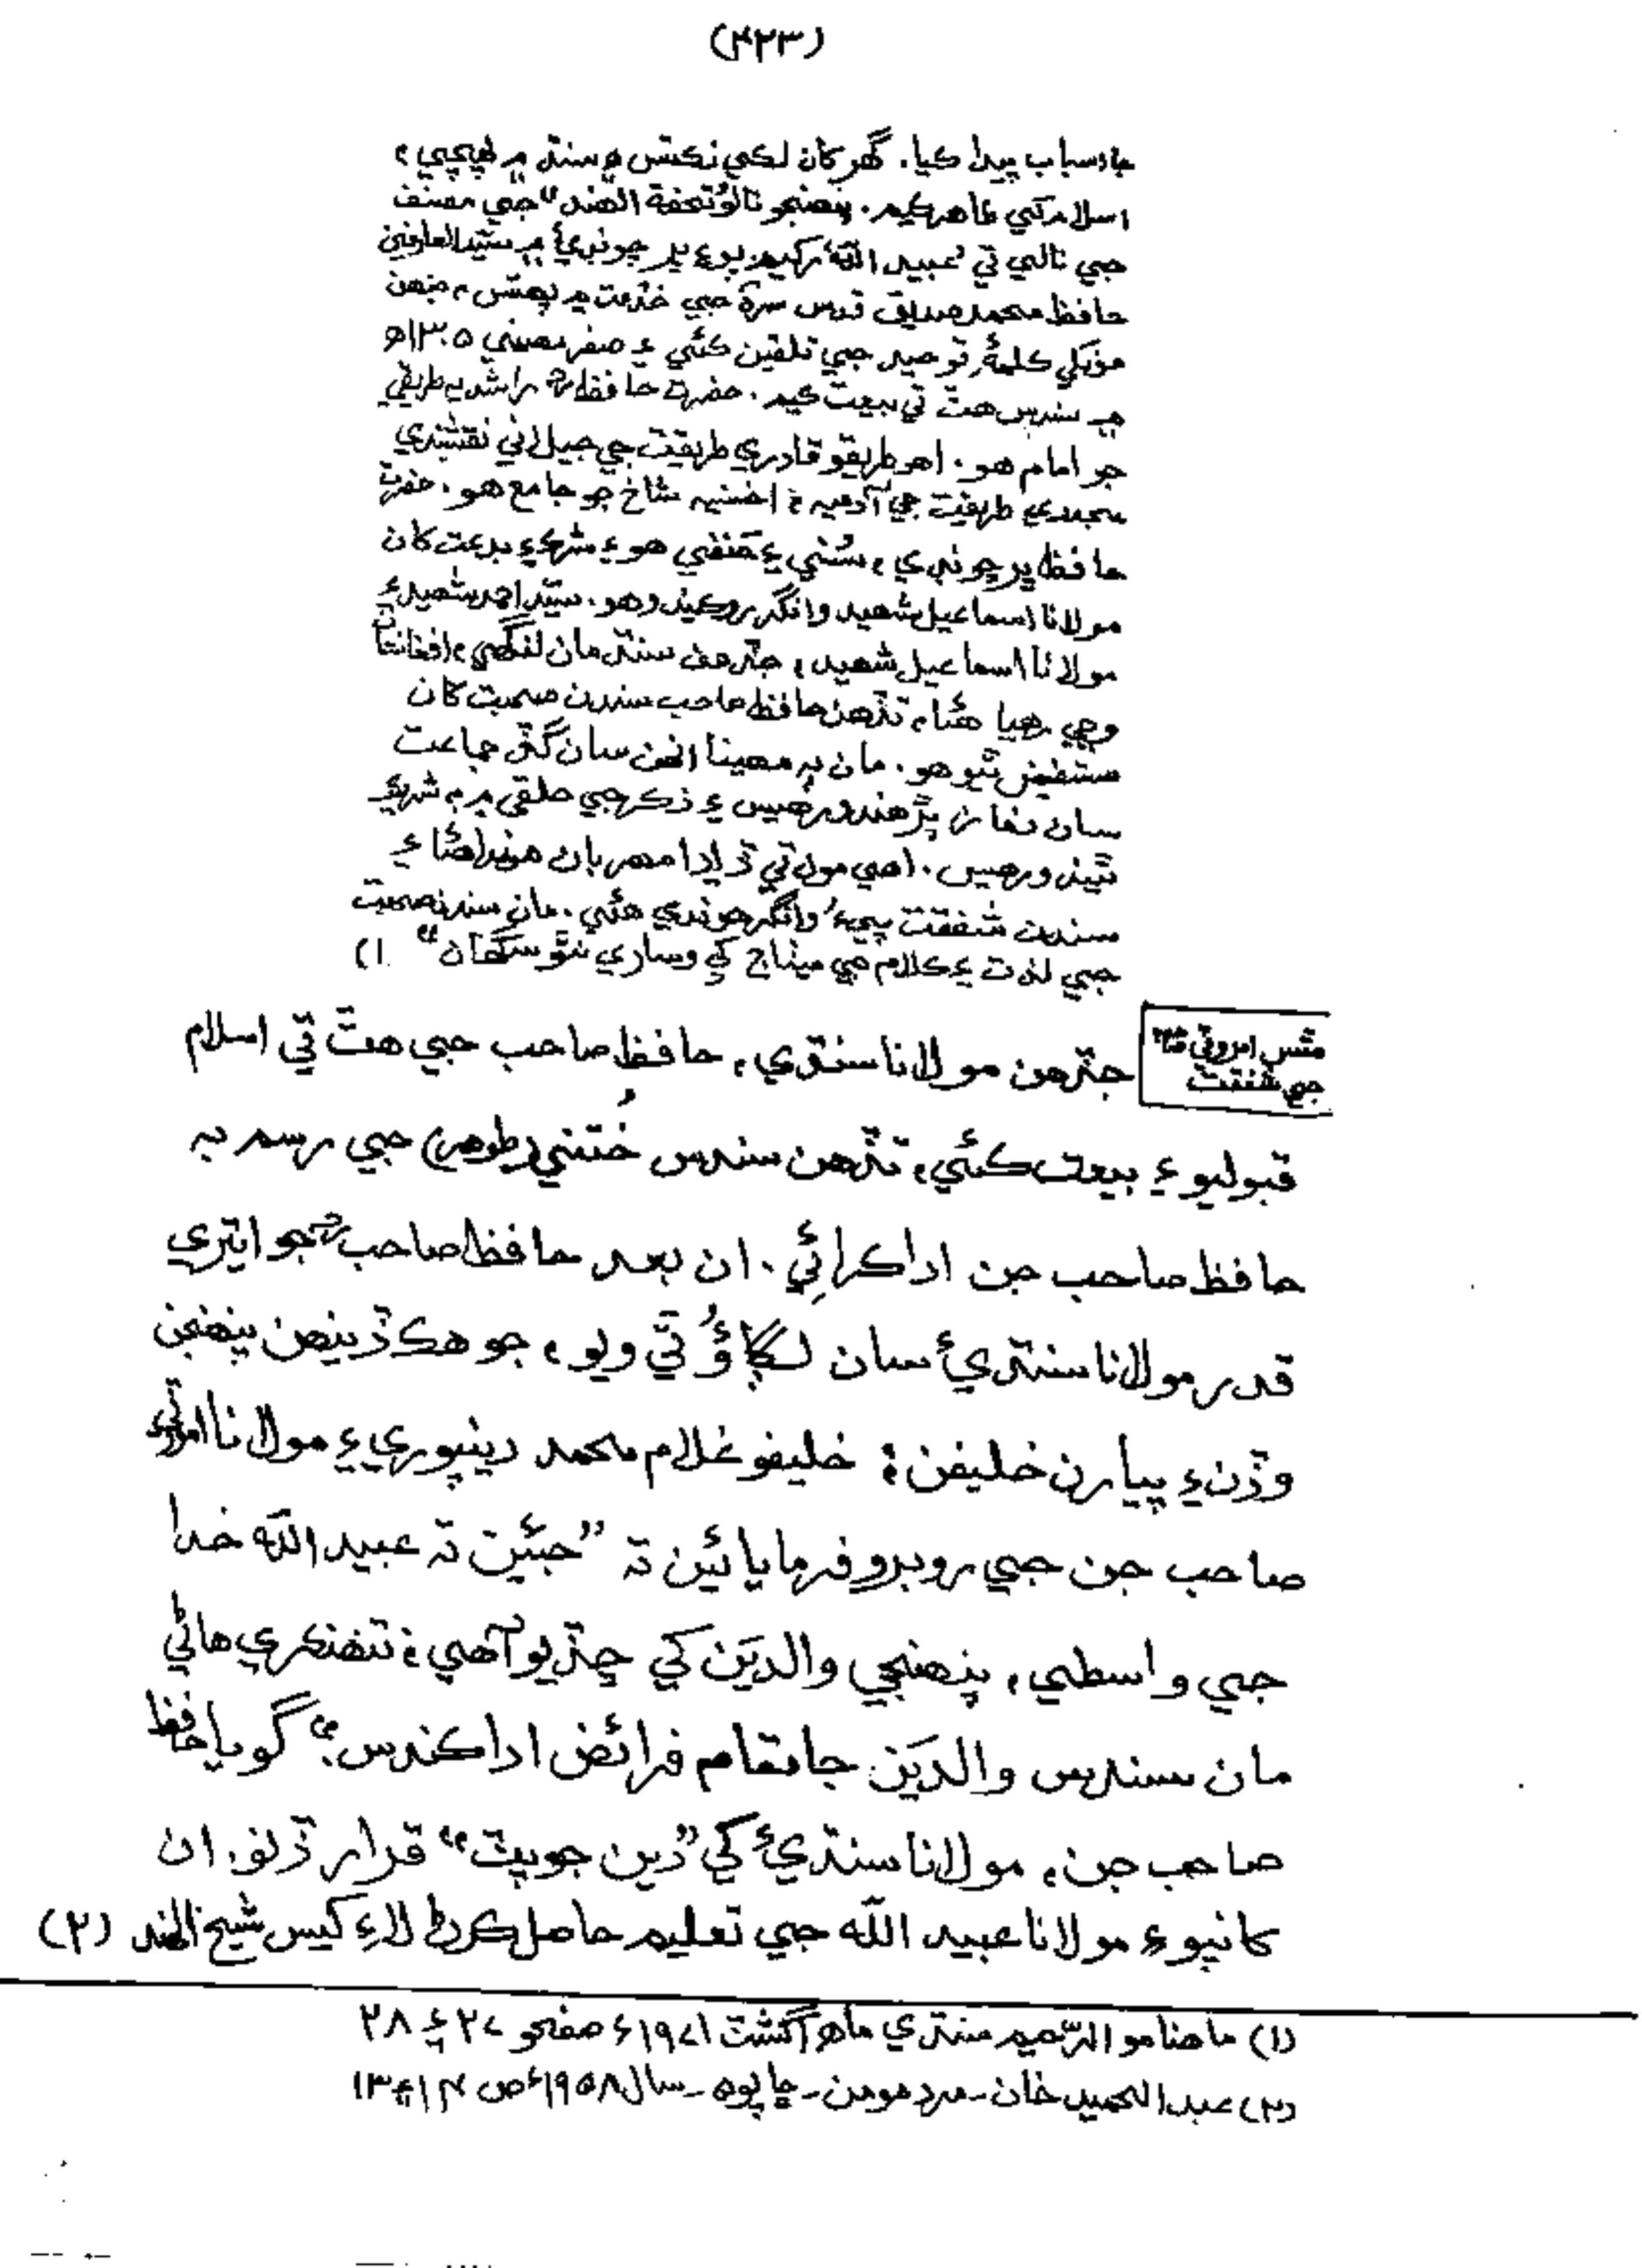 (۴۲۳)
جا اسباب پيدا ڪيا. گهر کان لڪي نڪتس ۽ سنڌ ۾ پهچي،
اسلام کي ظاهر ڪيم. پنهنجو نالو ”تحفة الهند“ جي مصنف
جي نالي تي ’عبيد الله‘ رکيم، پوءِ ڀرچونڊيءَ ۾ سيّد العارفين
حافظ محمد صديق قدس سرهٗ جي خدمت ۾ پهتس، جنهن
مونکي ڪلمهٔ توحيد جي تلقين ڪئي ۽ صفر مهيني ۱۳۰۵ھ
۾ سندس هٿ تي بيعت ڪيم. حضرت حافظ رح راشديه طريقي
جو امام هو. اهو طريقو قادري طريقت جي جيلاني نقشبندي
مجددي طريقت جي آدميه ۽ احسنيه شاخ جو جامع هو. حضرت
حافظ ڀرچونڊي، سُني ۽ حَنفي هو ۽ شرڪ ۽ بدعت کان
مولانا اسماعيل شهيد وانگر روڪيندو هو. سيّد احمد شهيد ۽
مولانا اسماعيل شهيد، جڏهن سنڌ مان لنگهي، افغانستان
وڃي رهيا هئا، تڏهن حافظ صاحب سندن صحبت کان
مستفيض ٿيو هو. مان ٻه مهينا انهن سان گڏ جماعت
سان نماز پڙهندو رهيس ۽ ذڪر جي حلقي ۾ به شريڪ
ٿيندو رهيس. اهي مون تي ڏاڍا مهربان هوندا هئا ۽
سندن شفقت پيءُ وانگر هوندي هئي. مان سندن صحبت
جي لذت ۽ ڪلام جي ميٺاج کي وساري نٿو سگهان“ (۱)
مٿس امروٽي صاحب
جي شفقت
جڏهن مولانا سنڌي، حافظ صاحب جي هٿ تي اسلام
قبوليو ۽ بيعت ڪئي، تڏهن سندس خُتني (طوهر) جي رسم به
حافظ صاحب جن ادا ڪرائِي. ان بعد حافظ صاحب رح جو ايتري
قدر مولانا سنڌيءَ سان لڳاؤُ ٿي ويو، جو هڪ ڏينهن پنهنجن
وڏن ۽ پيارن خليفن: خليفو غلام محمد دينپوري ۽ مولانا امروٽي
صاحب جن جي روبرو فرمايائين ته ”جيئن ته عبيد الله خدا
جي واسطي، پنهنجي والدَين کي ڇڏيو آهي؛ تنهنڪري هاڻي
مان سندس والدَين جا تمام فرائض ادا ڪندس.“ گويا حافظ
صاحب جن، مولانا سنڌيءَ کي ”دين جو پٽ“ قرار ڏنو. ان
کانپوءِ مولانا عبيد الله جي تعليم حاصل ڪرڻ لاءِ کيس شيخ الهند (۲)
(۱) ماهنامو الرّحيم سنڌي ماھ آگسٽ ۱۹۷۱ع صفحو ۲۷ ۽ ۲۸
(۲) عبدالحميد خان - مرد مومن - ڇاپو - سال ۱۹۵۸ع ص ۱۲ ۽ ۱۳